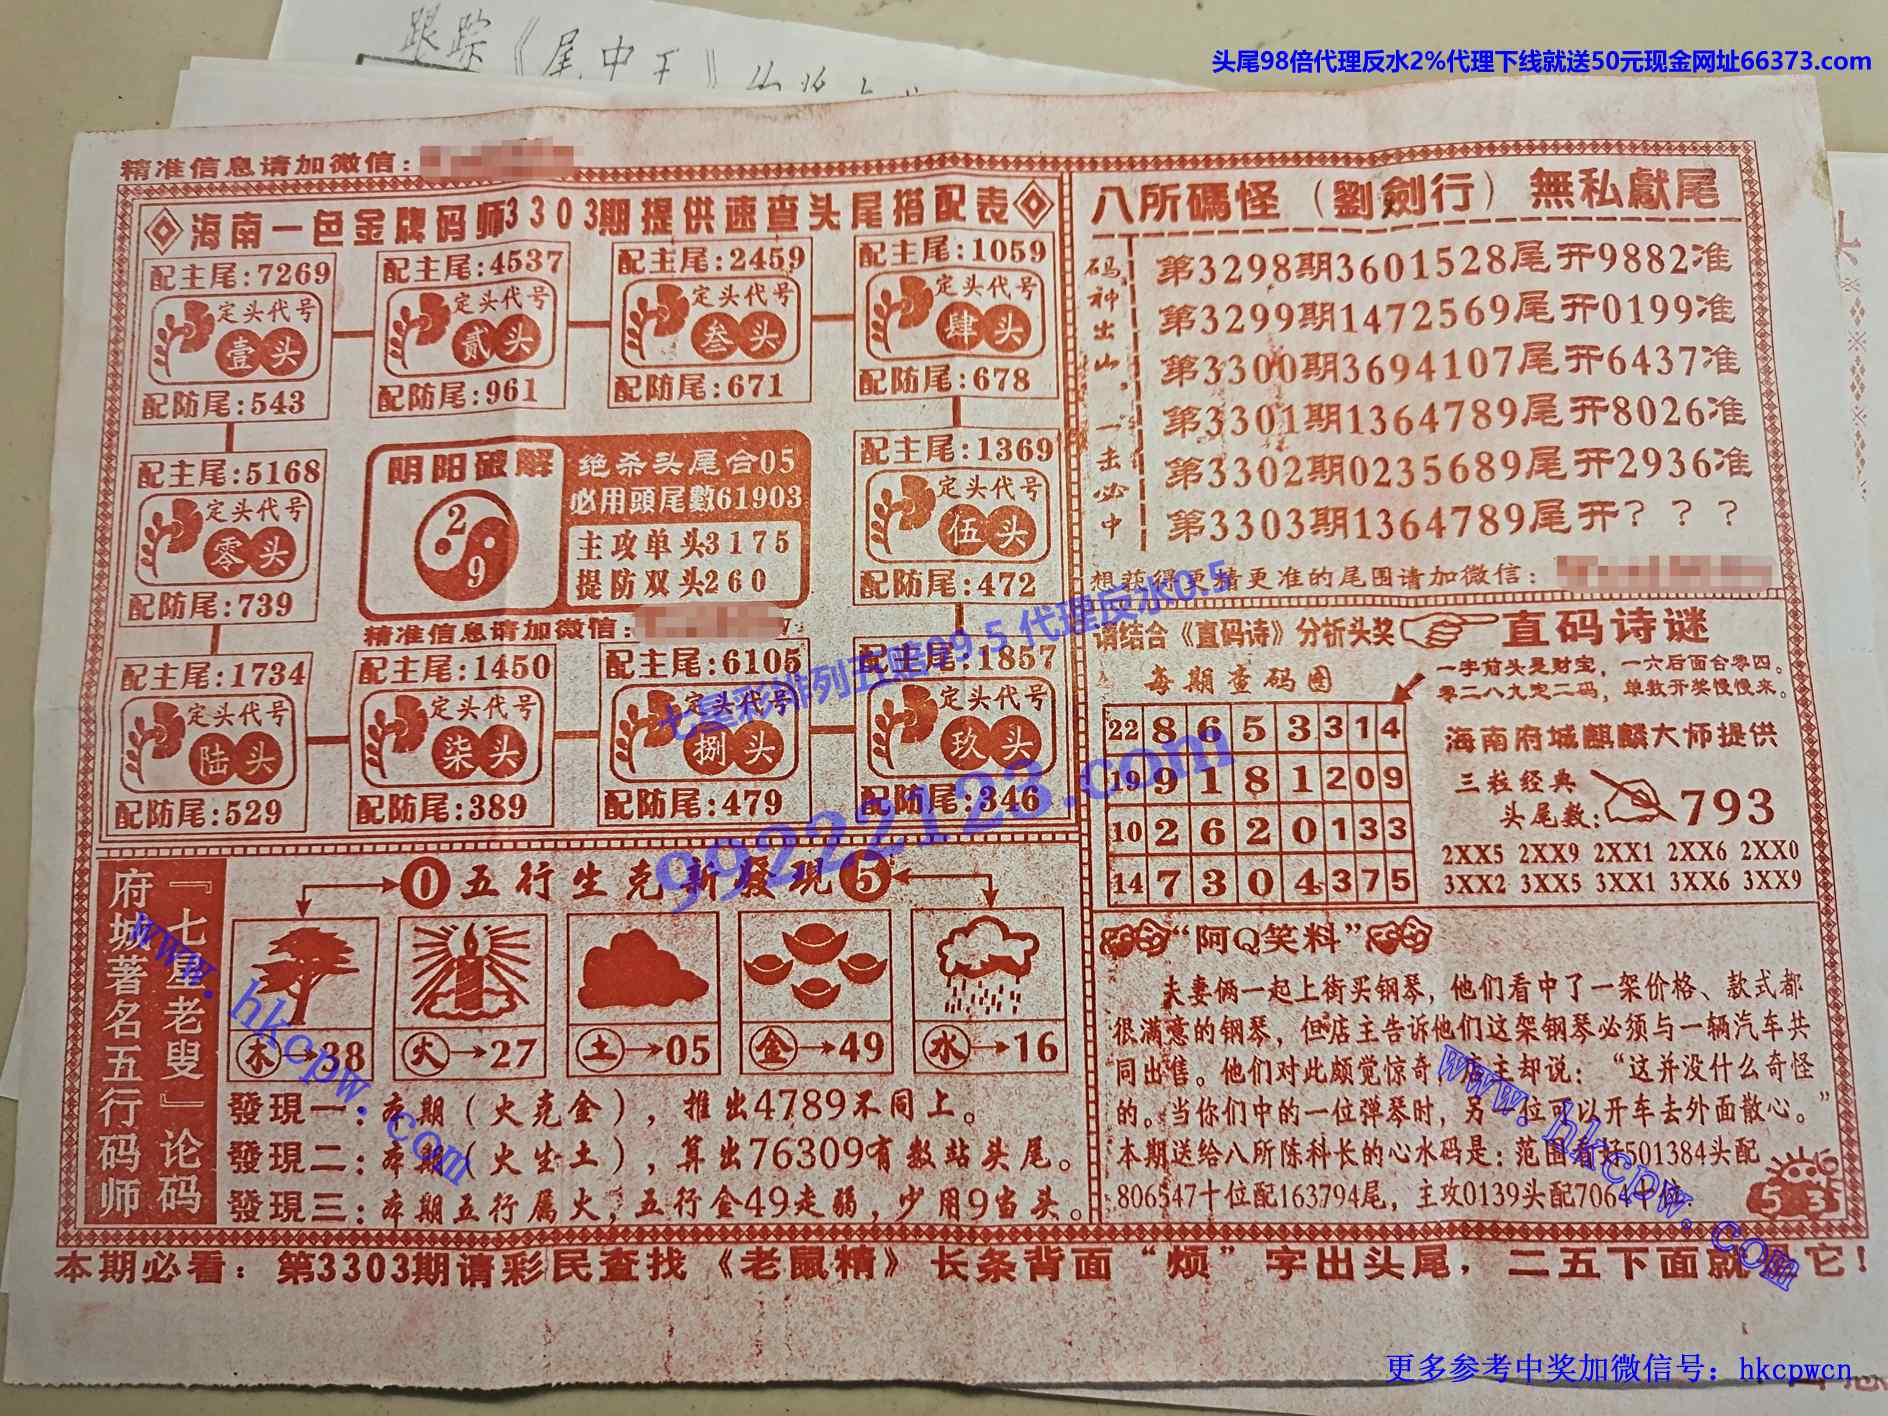 跟踪《尾中王》
头尾98倍代理反水2%代理下线就送50元现金网址66373.com
精准信息请加微信:
海南一色金牌码师3303期提供速查头尾搭配表
配主尾:7269
定头代号
壹头
配防尾:543
配主尾:4537
定头代号
贰头
配防尾:961
配主尾:2459
定头代号
叁头
配防尾:671
配主尾:1059
定头代号
肆头
配防尾:678
配主尾:5168
定头代号
零头
配防尾:739
阴阳破解
2
9
绝杀头尾合05
必用頭尾數61903
主攻单头3175
提防双头260
精准信息请加微信:
配主尾:1369
定头代号
伍头
配防尾:472
配主尾:1734
定头代号
陆头
配防尾:529
配主尾:1450
定头代号
柒头
配防尾:389
配主尾:6105
定头代号
捌头
配防尾:479
配主尾:1857
定头代号
玖头
配防尾:346
八所碼怪（劉劍行）無私獻尾
码神出山，一击必中
第3298期3601528尾开9882准
第3299期1472569尾开0199准
第3300期3694107尾开6437准
第3301期1364789尾开8026准
第3302期0235689尾开2936准
第3303期1364789尾开？？？
想获得更精更准的尾围请加微信:
七星彩排列五赔99.5 代理反水0.5
99222123.com
请结合《直码诗》分析头奖
直码诗谜
每期查码图
一字前头是财宝，一六后面合零四。
零二八九定二码，单数开奖慢慢来。
22 8 6 5 3 3 1 4
19 9 1 8 1 2 0 9
10 2 6 2 0 1 3 3
14 7 3 0 4 3 7 5
海南府城麒麟大师提供
三粒经典
头尾数: 793
2XX5 2XX9 2XX1 2XX6 2XX0
3XX2 3XX5 3XX1 3XX6 3XX9
府城著名五行码师
『七星老叟』论码
0 五行生克新發現 5
木→38
火→27
土→05
金→49
水→16
發現一: 本期（火克金），推出4789不同上。
發現二: 本期（火生土），算出76309有数站头尾。
發現三: 本期五行属火，五行金49走弱，少用9当头。
“阿Q笑料”
夫妻俩一起上街买钢琴，他们看中了一架价格、款式都
很满意的钢琴，但店主告诉他们这架钢琴必须与一辆汽车共
同出售。他们对此颇觉惊奇，店主却说：“这并没什么奇怪
的。当你们中的一位弹琴时，另一位可以开车去外面散心。”
本期送给八所陈科长的心水码是: 范围看好501384头配
806547十位配163794尾，主攻0139头配7064十位
5 3
www.hkcpw.com
www.hkcpw.com
本期必看: 第3303期请彩民查找《老鼠精》长条背面“烦”字出头尾，二五下面就是它！
更多参考中奖加微信号：hkcpwcn